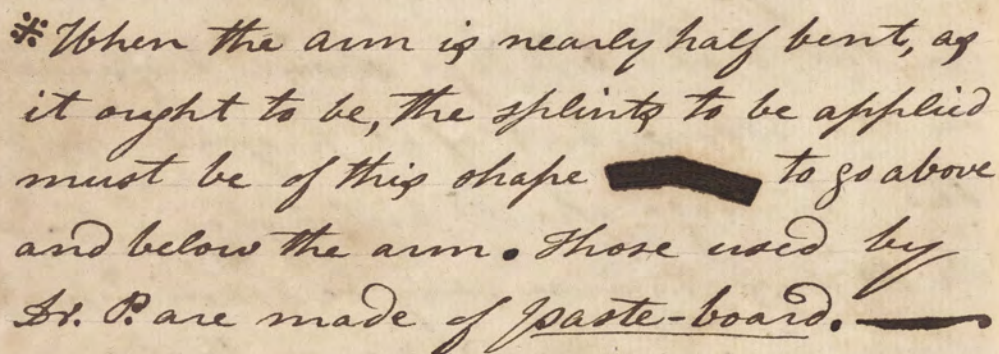 ※When the arm is nearly half bent, as
it ought to be, the splints to be applied
must be of this shape to go above
and below the arm. Those used by
Dr. P. are made of paste-board. —